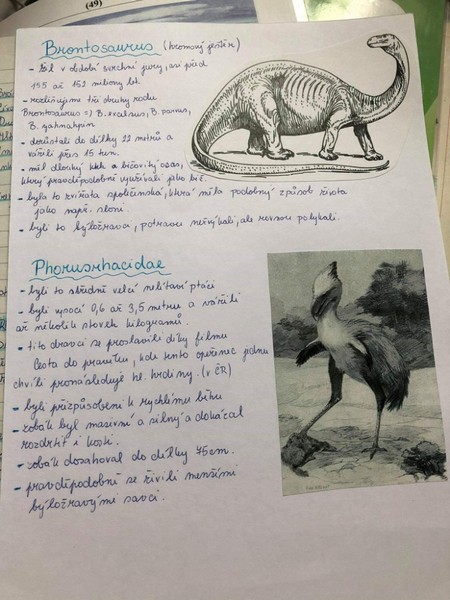 (49)
Brontosaurus (hromový ještěr)
- žil v období svrchní jury, asi před
155 až 152 miliony let.
- rozlišujeme tři druhy rodu
Brontosaurus => B. excelsus, B. parvus,
B. yahnahpin
- dorůstali do délky 22 metrů a
vážili přes 15 tun.
- měl dlouhý krk a bičovitý ocas,
který pravděpodobně využívali jako bič.
- byla to zvířata společenská, která měla podobný způsob života
jako např. sloni.
- byli to býložravci, potravu nežvýkali, ale rovnou polykali.
Phorusrhacidae
- byli to středně velcí nelétaví ptáci
- byli vysocí 0,6 až 3,5 metru a vážili
až několik stovek kilogramů.
- tito dravci se proslavili díky filmu
Cesta do pravěku, kde tento opeřenec jednu
chvíli pronásleduje hl. hrdiny. (v ČR)
- byli přizpůsobeni k rychlému běhu
- zobák byl masivní a silný a dokázal
rozdrtit i kosti.
- zobák dosahoval do délky 75cm.
- pravděpodobně se živili menšími
býložravými savci.